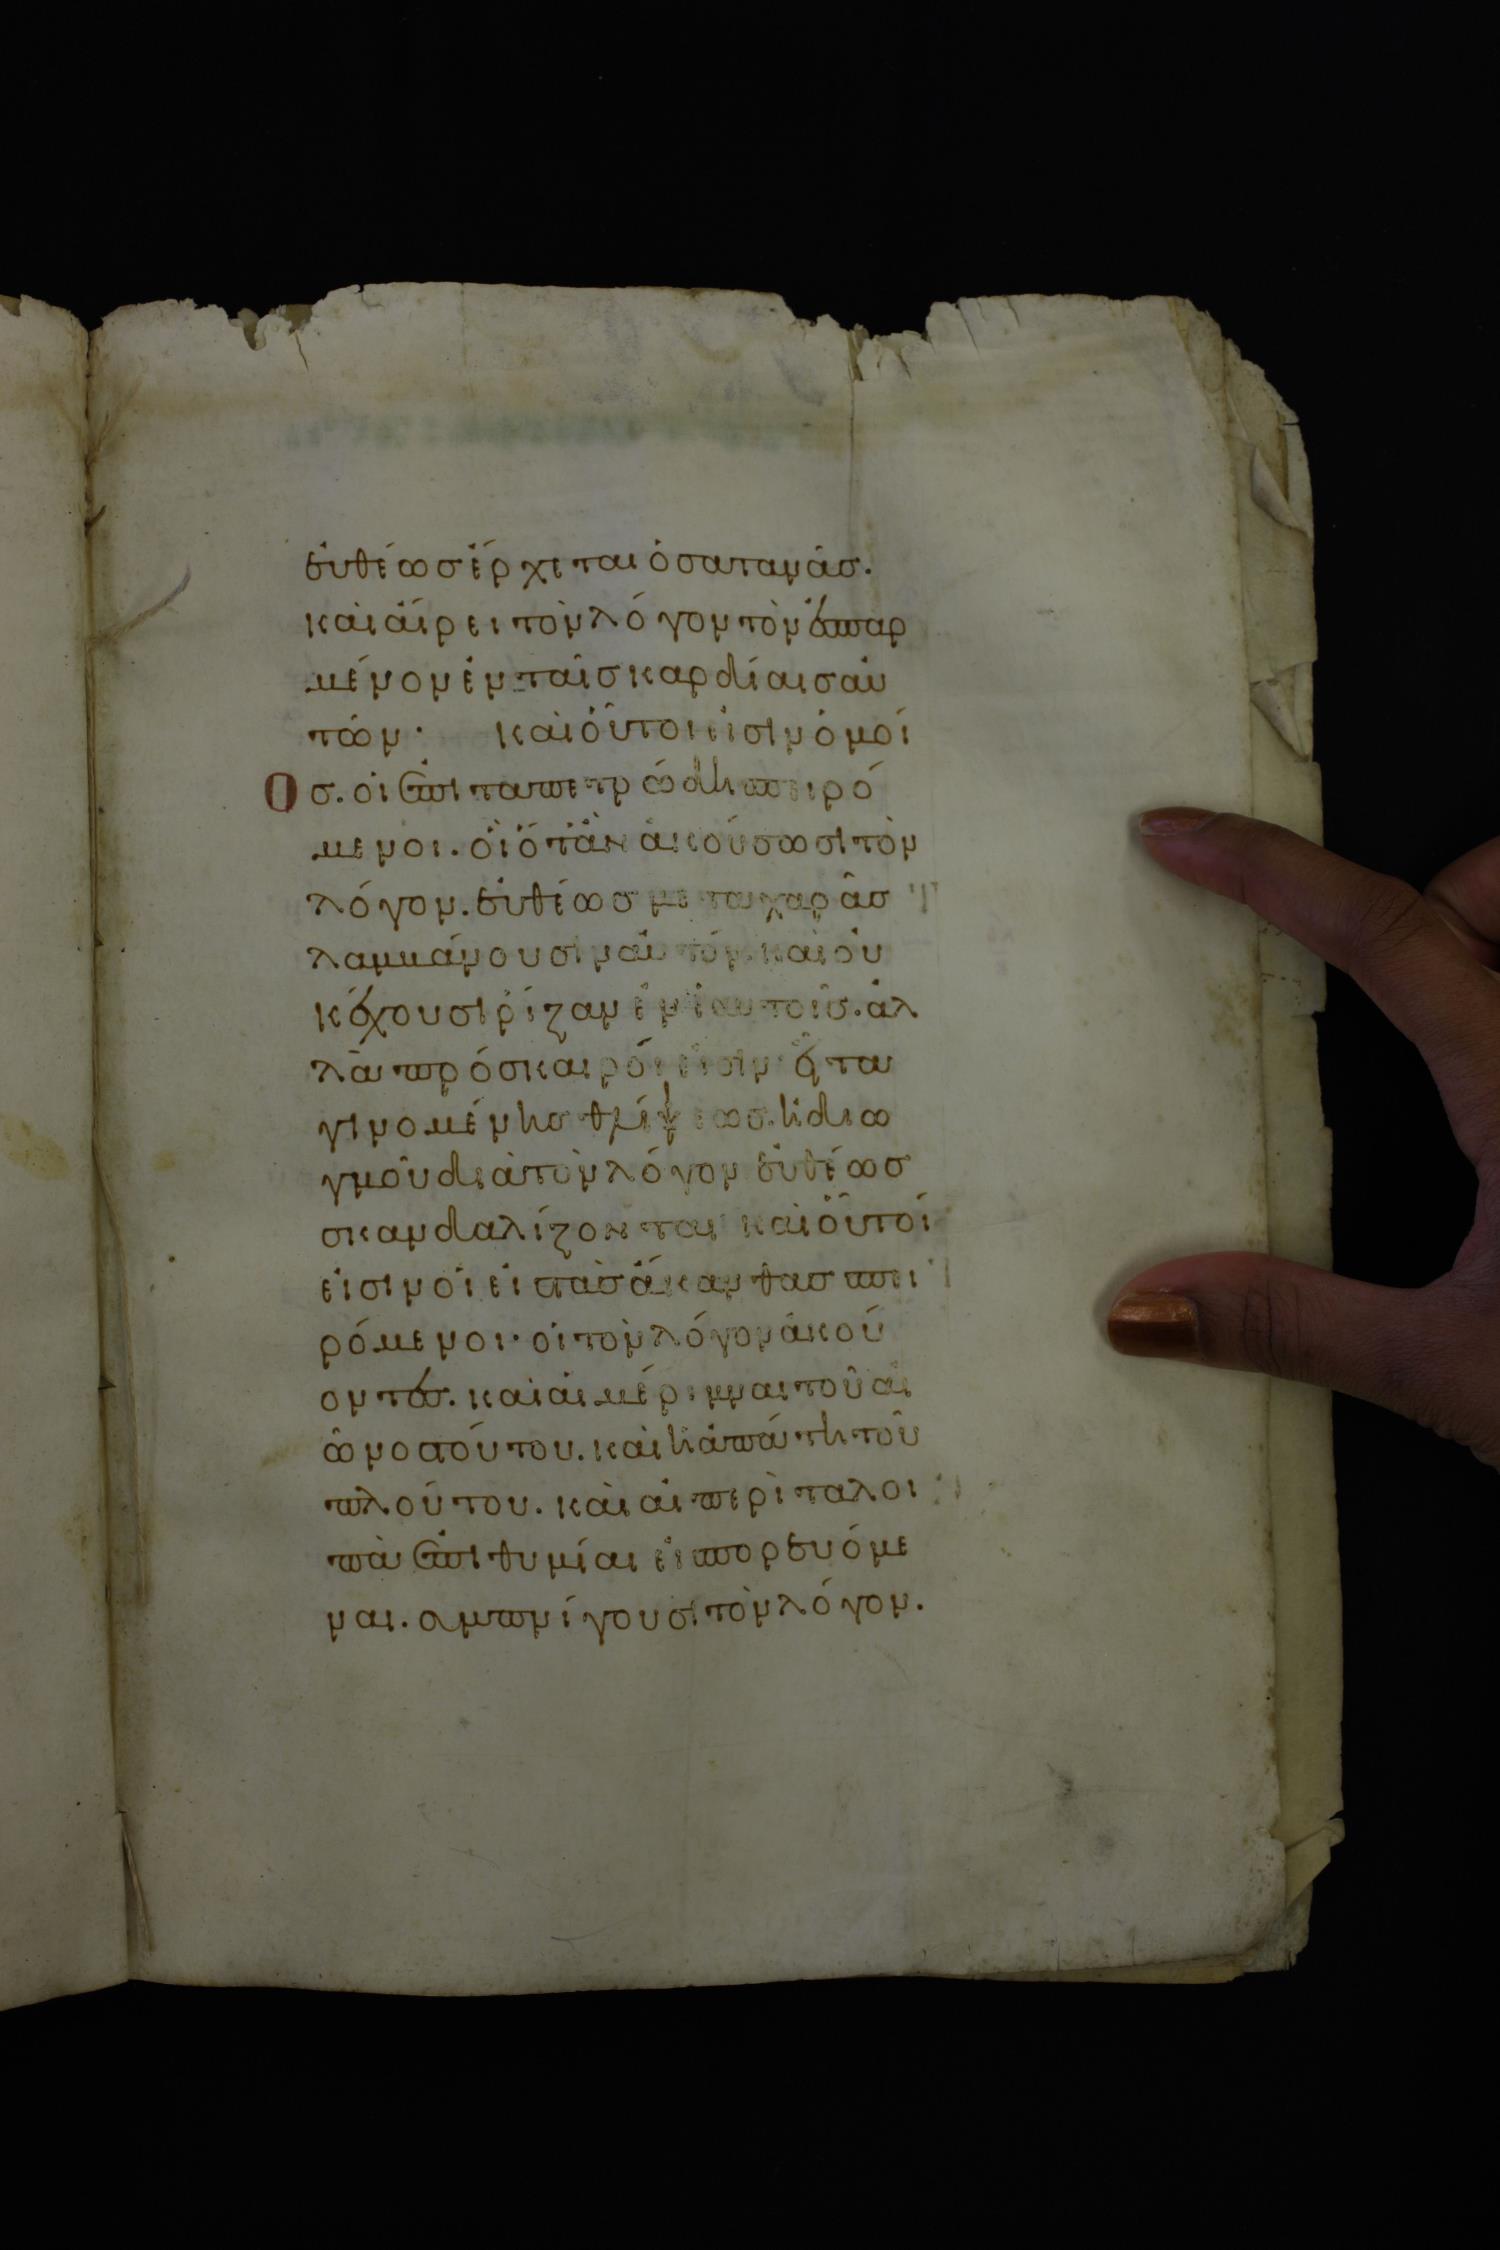 εὐθέωσ ἔρχεται ὁ σατανᾶσ.
καὶ αἴρει τὸν λόγον τὸν ἐσπαρ
μένον ἐν ταῖσ καρδίαισ αὐ
τῶν· καὶ οὗτοι εἰσὶν ὁμοί
Οσ. οἱ ἐπὶ τὰ πετρώδη σπειρό
μενοι. οἳ ὅταν ἀκούσωσι τὸν
λόγον. εὐθέωσ μετὰ χαρᾶσ
λαμβάνουσιν αὐτόν. καὶ οὐ
κ ἔχουσι ῥίζαν ἐν ἑαυτοῖσ. ἀλ
λὰ πρόσκαιροί εἰσιν εἶτα
γινομένησ θλίψεωσ. ἢ διω
γμοῦ διὰ τὸν λόγον εὐθέωσ
σκανδαλίζονται καὶ οὗτοί
εἰσιν οἱ εἰσ τὰσ ἀκάνθασ σπει
ρόμενοι· οἱ τὸν λόγον ἀκού
οντεσ. καὶ αἱ μέριμναι τοῦ αἰ
ῶνοσ τούτου. καὶ ἡ ἀπάτη τοῦ
πλούτου. καὶ αἱ περὶ τὰ λοι
πὰ ἐπιθυμίαι εἰσπορευόμε
ναι. συμπνίγουσι τὸν λόγον.